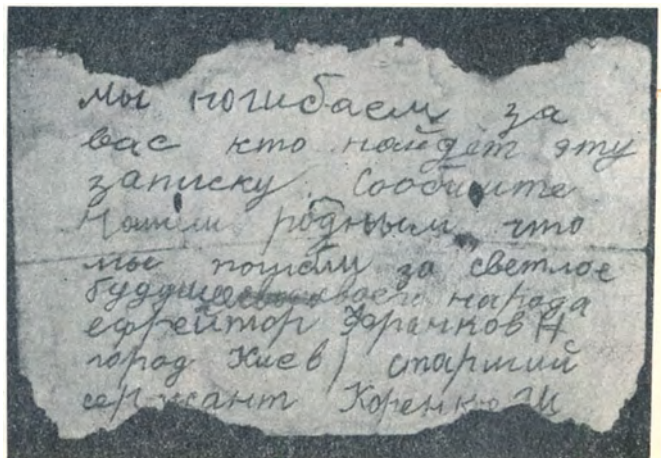 мы погибаем за
вас кто найдет эту
записку. Сообщите
нашим родным что
мы погибли за светлое
будущее своего народа
ефрейтор
город Киев) старший
сержант